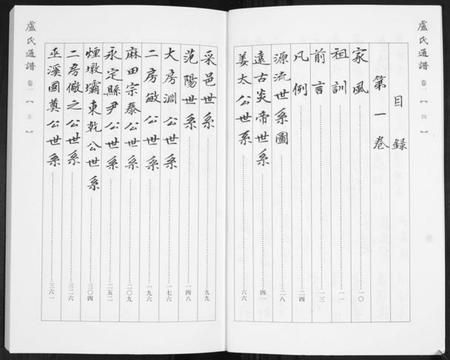 盧氏通譜 卷一 【四】
目錄
第一卷
家風……一〇
祖訓……一一
前言……一三
凡例
源流世系圖……二八
遠古炎帝世系……四一
姜太公世系……六六
盧氏通譜 卷一 【五】
采邑世系……九九
范陽世系……一四八
大房淵公世系……一七六
二房敏公世系……一九六
麻田宗泰公世系……二〇九
永定縣尹公世系……二五二
煙墩壩東乾公世系……三〇四
二房儆之公世系……三二六
巫溪國奠公世系……三六一